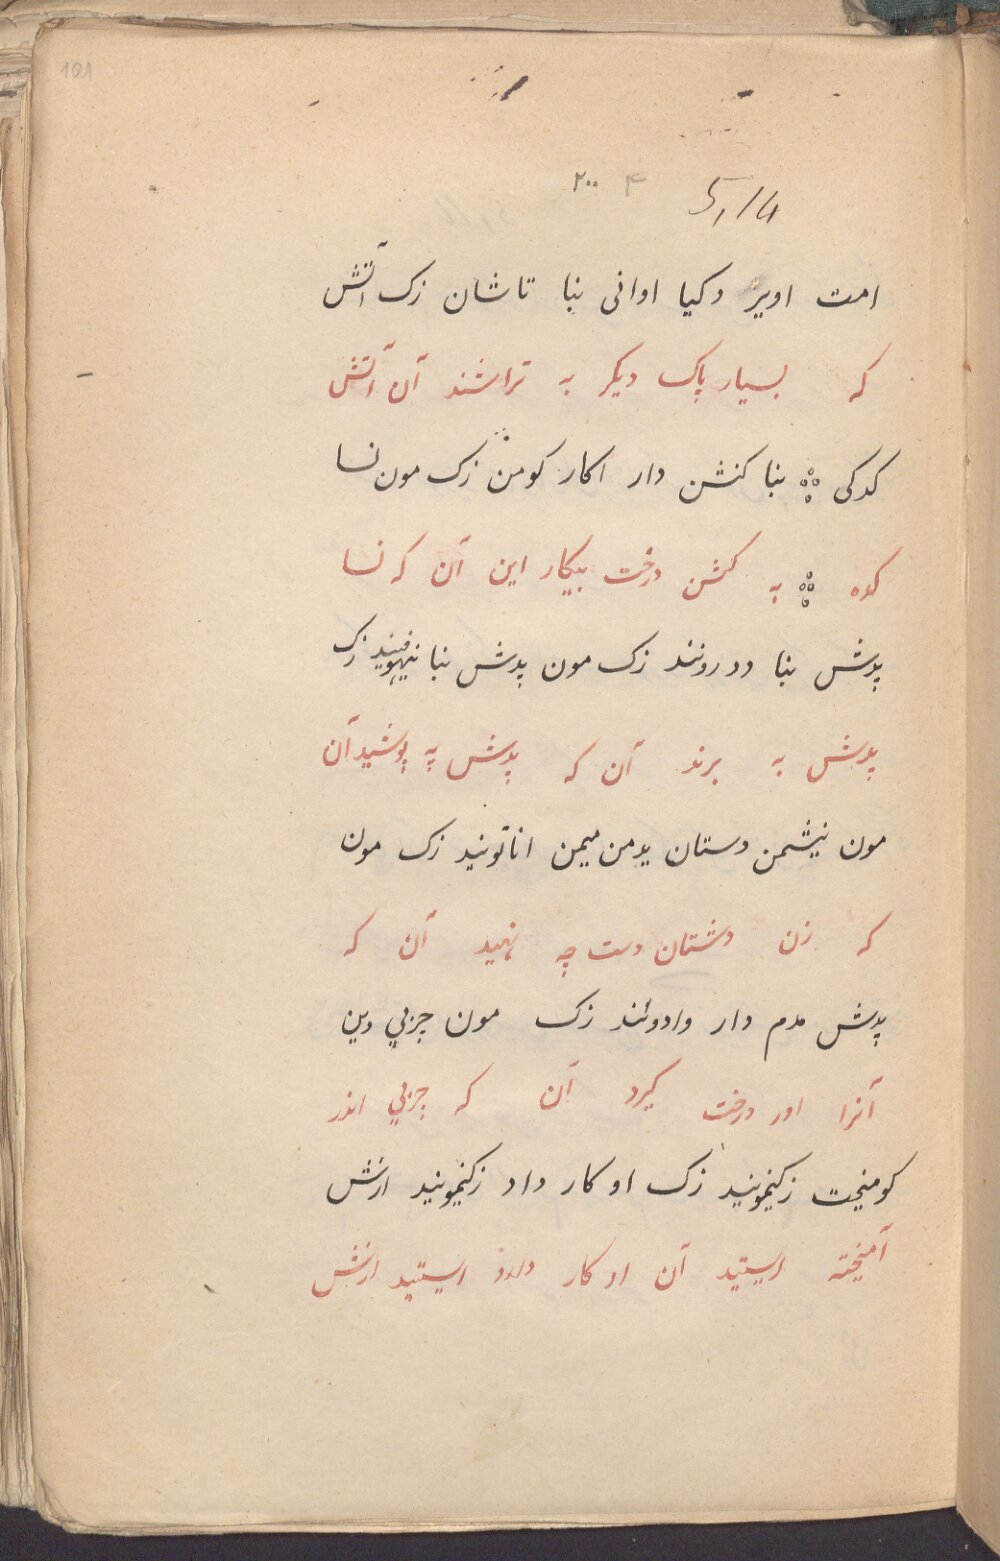 ۱۵۸
۲۰۰ ۴ 5,14
امت اویر دکیا اوانی بنا تاشان زک آتش
که بسیار پاک دیکر به تراشند آن آتش
کدکی بنا کنشن دار اکار کومن زک مون نسا
کده به کشن درخت بیکار این آن که نسا
پدش بنا ددرونند زک مون پدش بنا نیهوفیند زک
پدش به برند آن که پدش په پوشید آن
مون نیشمن دستان یدمن میمن اناتونید زک مون
که زن دشتان دست چه نهید آن که
پدش مدم دار وادونند زک مون چربی دین
آنرا اور درخت کیرد آن که چربی اندر
کومنیجت زکنیمونید زک او کار داد زکنیمونید ازش
آمیخته ایستید آن او کار داد ایستید ازش